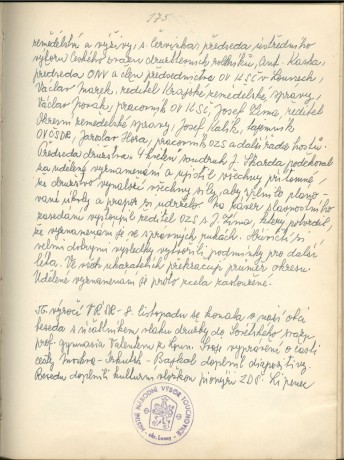 175
zemědělství a výživy, s. Červinka, předseda ústředního
výboru Českého svazu družstevních rolníků, Ant. Kaska,
předseda ONV a člen předsednictva OV KSČ v Lounech,
Václav Marek, ředitel Krajské zemědělské správy,
Václav Novák, pracovník OV KSČ, Josef Zíma, ředitel
Okresní zemědělské správy, Josef tajemník
OVČSDR, Jaroslav Hora, pracovník OZS a další řada hostů.
Předseda družstva soudruh J. Škarda poděkoval
za udělený vyznamenání a ujistil všechny přítomné,
že družstvo vynaloží všechny síly, aby splnilo pláno-
vané úkoly a prapor si udrželo. Na závěr slavnostního
zasedání vystoupil ředitel OZS s. J. Zíma, který potvrdil,
že vyznamenání je ve správných rukách. si
velmi dobrými výsledky vytvořili podmínky pro další
léta. Ve všech ukazatelích překračují průměr okresu.
Udělené vyznamenání je proto zcela zasloužené.
výročí VŘSR - 8. listopadu se konala v naší obci
beseda s účastníkem vlaku družby do Sovětského svazu
prof. gymnasia Valentem z Loun. Svoje vyprávění o části
cesty Moskva - Irkutsk - Bajkal doplnil diapozitivy.
Besedu doplnili kulturní vložkou pionýři ZDŠ Lipenec
MÍSTNÍ NÁRODNÍ VÝBOR TOUCHOVICE
okr. Louny